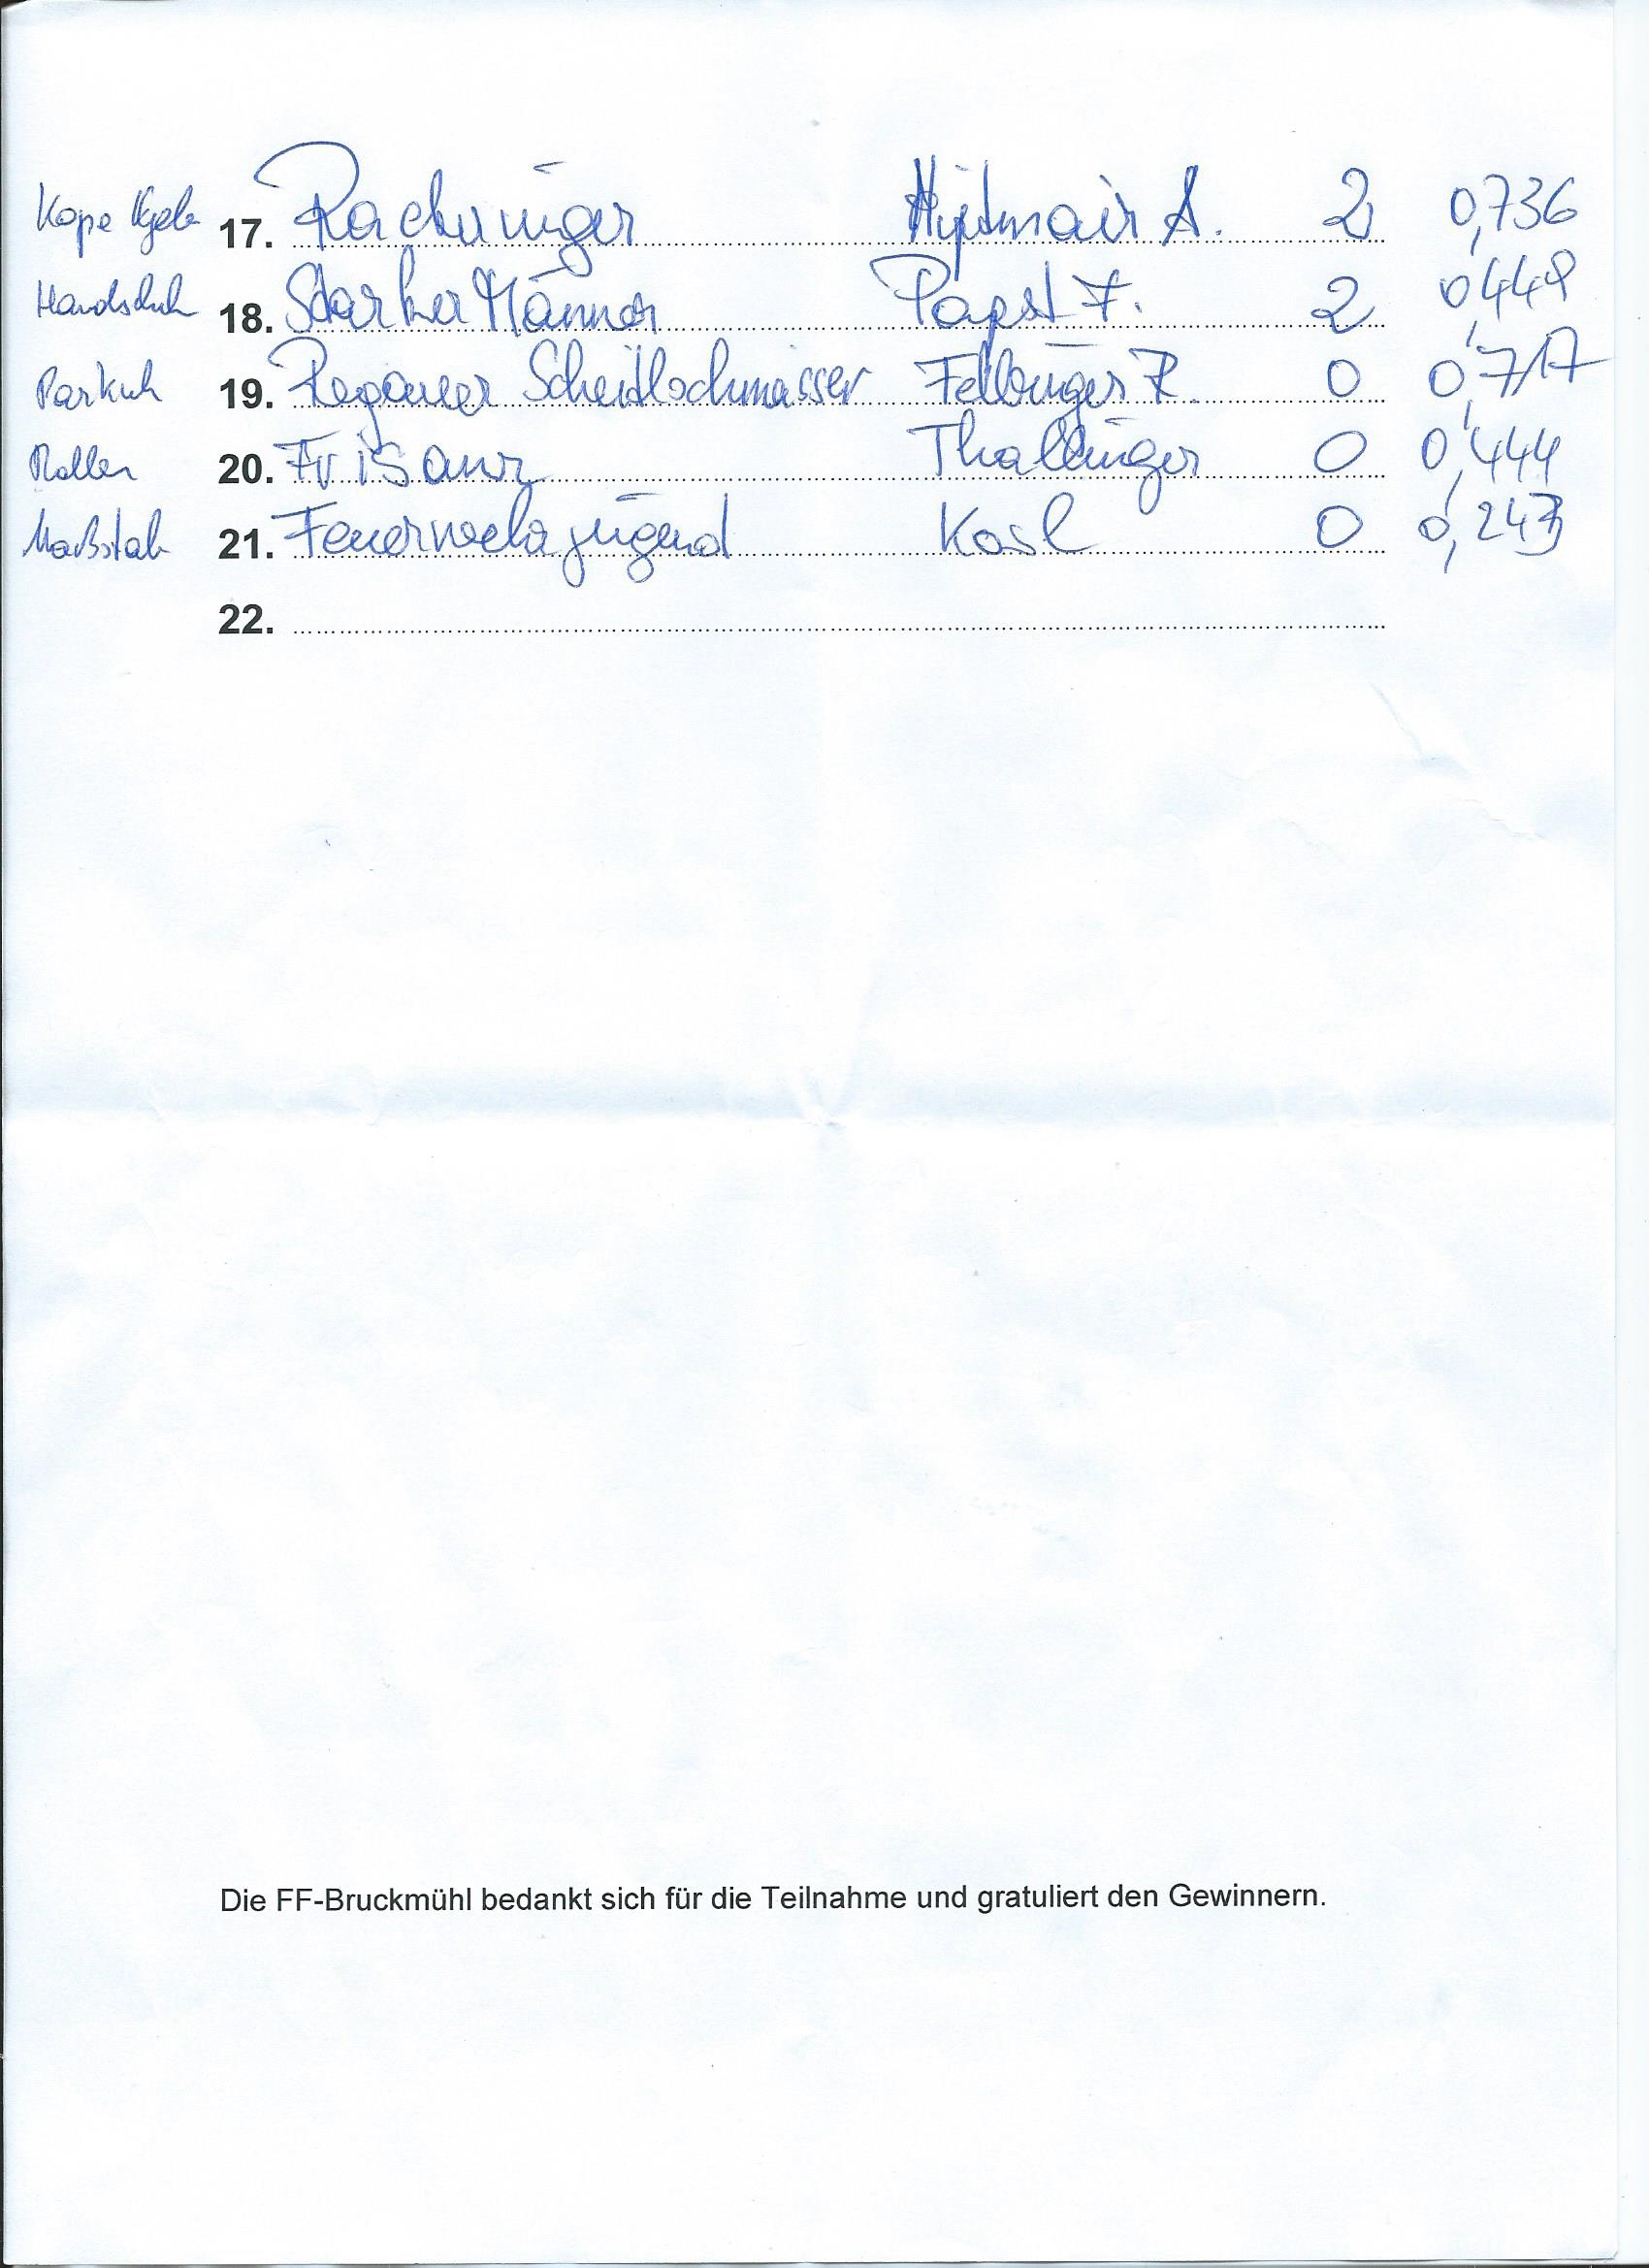 17. Rachinger Hiptmair A. 2 0,736
Handschuh 18. Starke Männer Papst F. 2 0,449
19. Regauer Scheitlschmasser Fellinger R. 0 0,717
Roller 20. Thallinger 0 0,444
Maßstab 21. Feuerwehrjugend Kasl 0 0,243
22.
Die FF-Bruckmühl bedankt sich für die Teilnahme und gratuliert den Gewinnern.